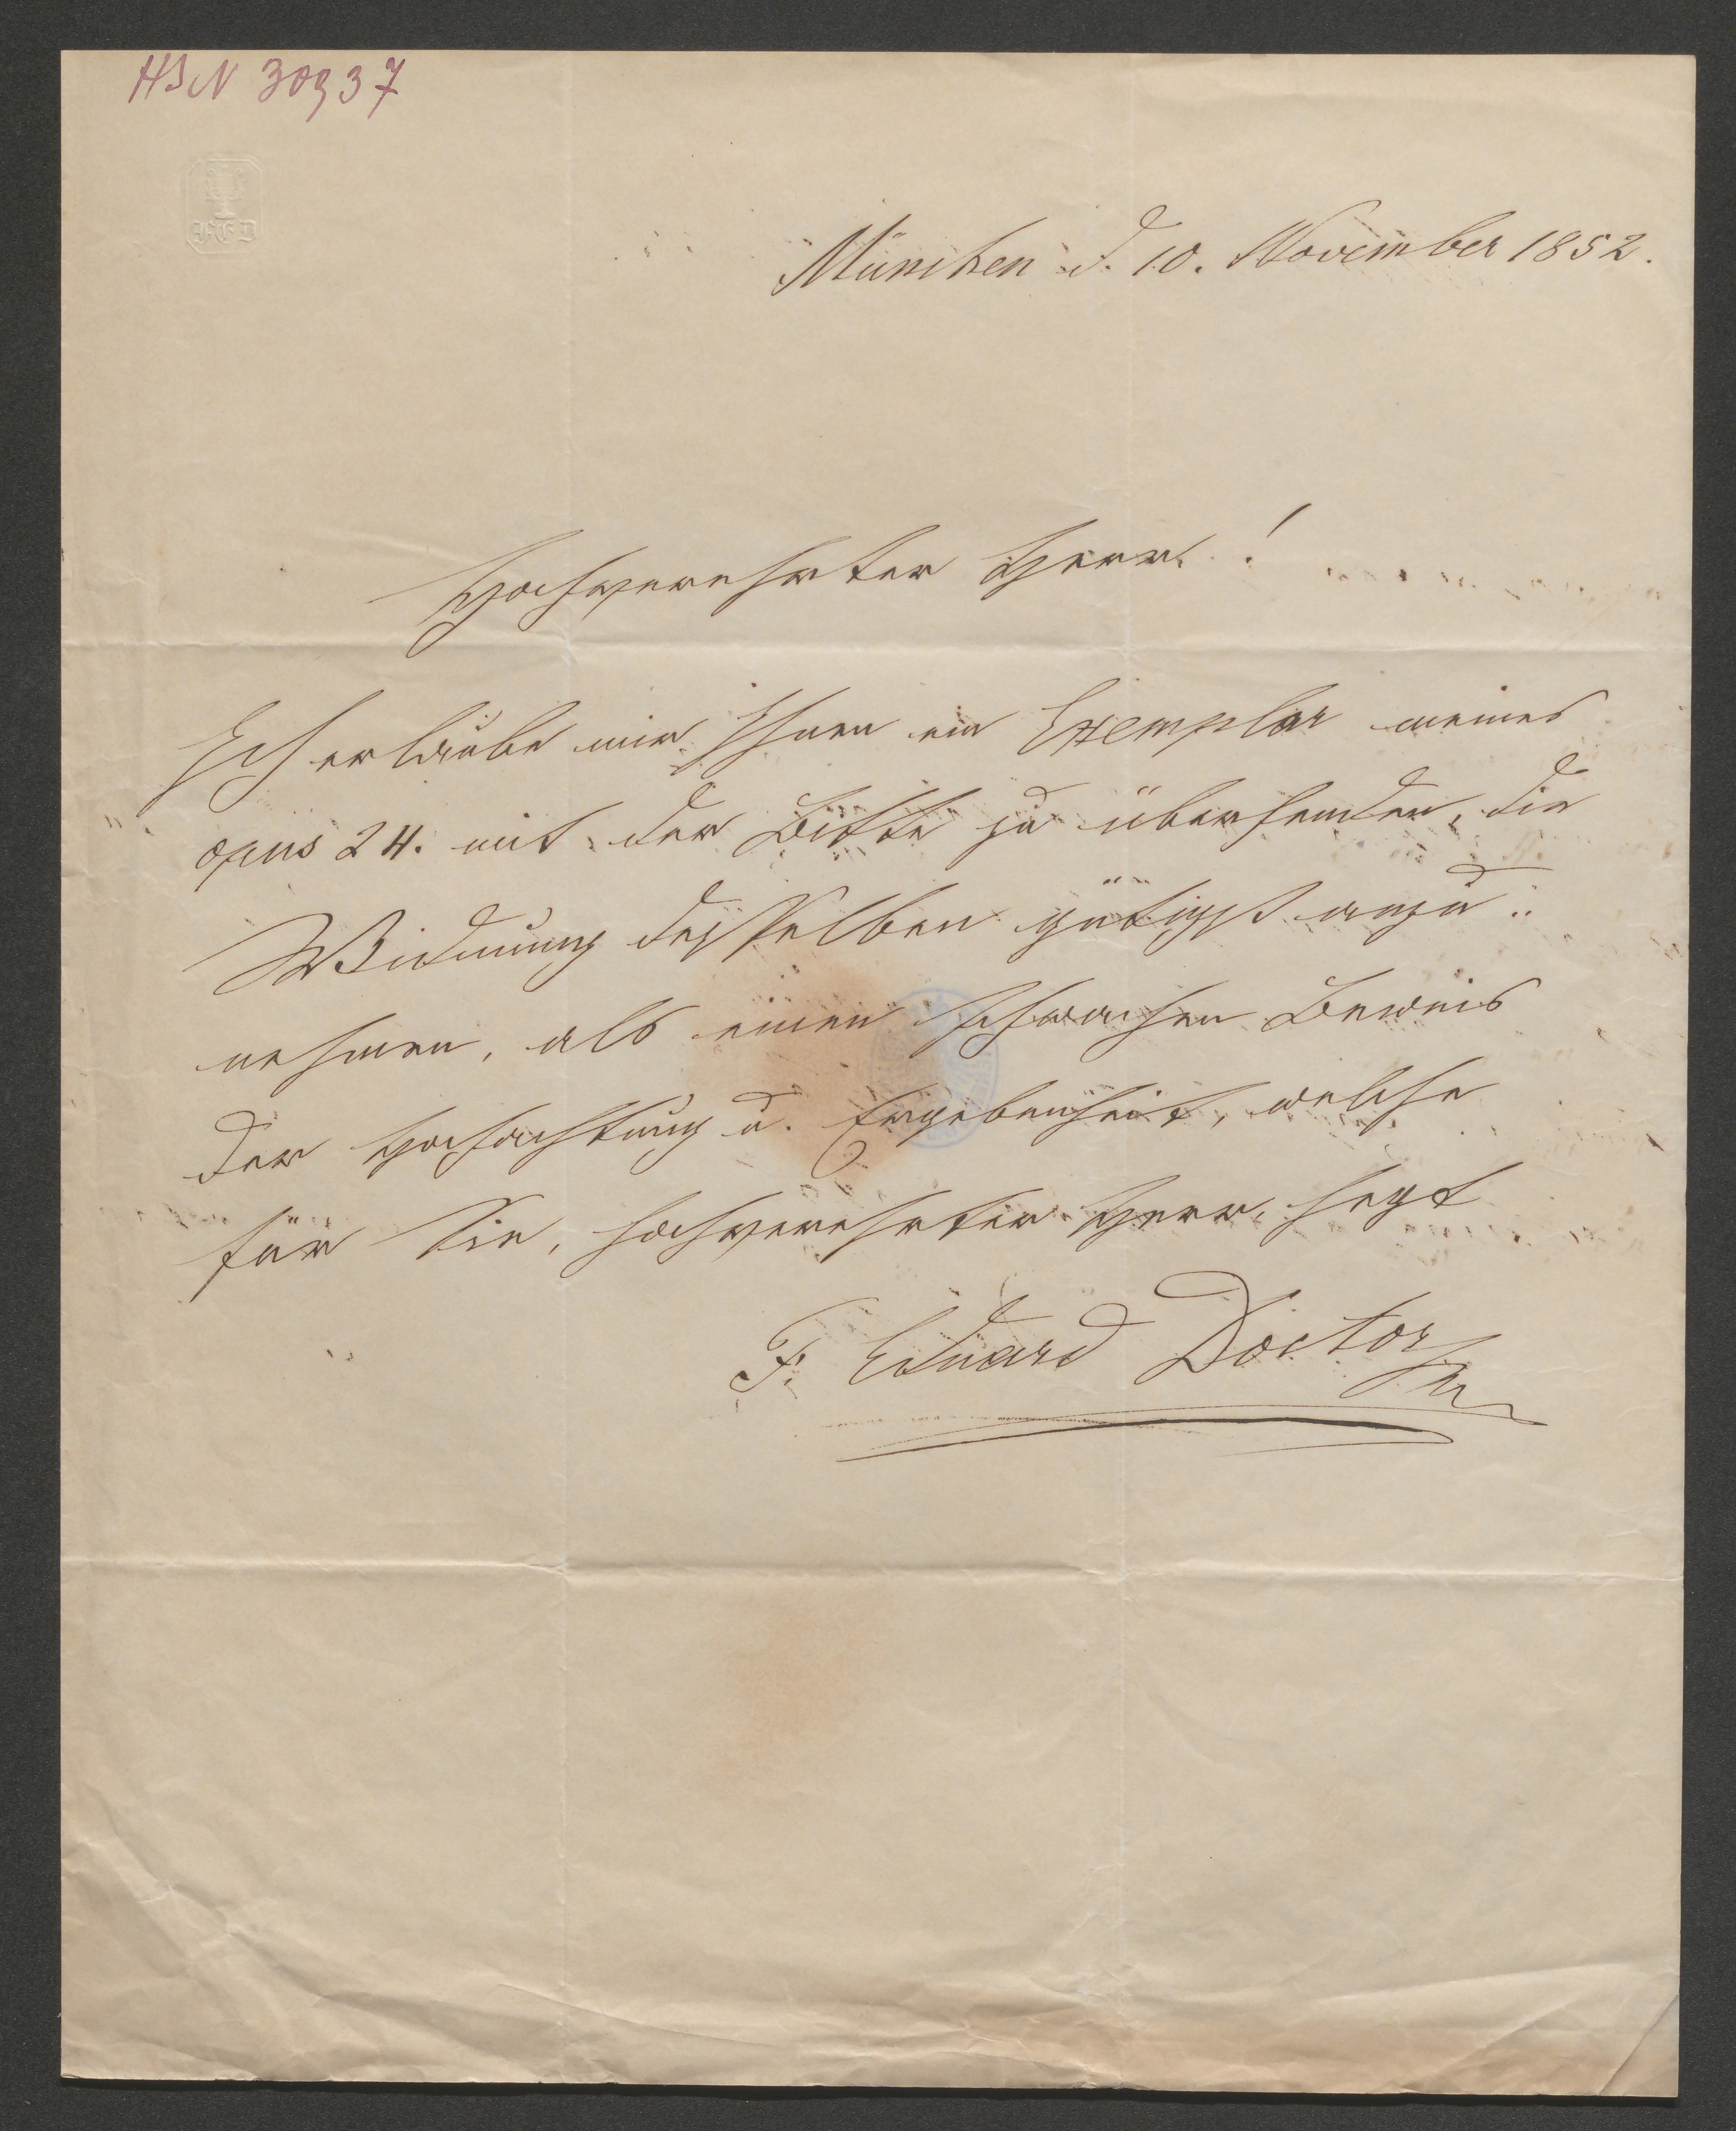 HIN 30937
FED
München d. 10. November 1852.
Hochverehrter Herr!
Ich erlaube mir Ihnen ein Exemplar meines
opus 24. mit der Bitte zu übersenden, die
Widmung desselben gütigst anzu..
nehmen, als einen schwachen Beweis
der Hochachtung u. Ergebenheit, welche
für Sie, hochverehrter Herr, hegt
F. Eduard Doctor